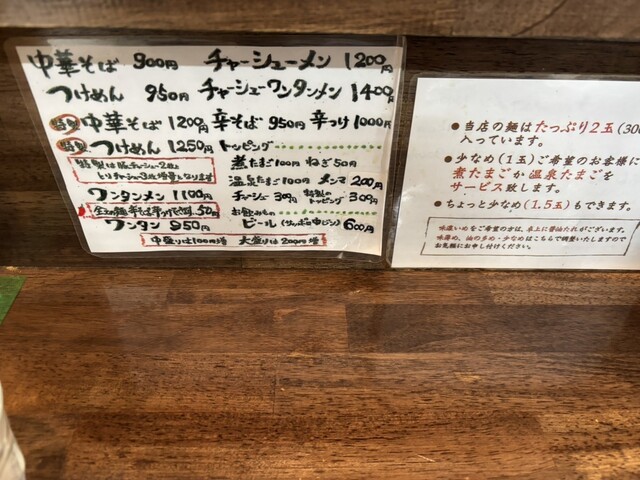 中華そば 900円 チャーシューメン 1200円
つけめん 950円 チャーシューワンタンメン 1400
特製 中華そば 1200円 辛そば 950円 辛つけ 1000円
特製 つけめん 1250円 トッピング
特製は豚チャーシュー2枚と
とりチャーシュー3枚増量となります
煮たまご 100円 ねぎ 50円
温泉たまご 100円 メンマ 200円
ワンタンメン 1100円 チャーシュー 300円 特製のトッピング 300円
50円 お飲みもの
ワンタン 950円 ビール (サッポロ中ビン) 600円
中盛りは100円増 大盛りは200円増
●当店の麺はたっぷり2玉(300
入っています。
●少なめ(1玉)ご希望のお客様に
煮たまごか温泉たまごを
サービス致します。
●ちょっと少なめ(1.5玉)もできます。
味濃いめをご希望の方は、卓上に醤油たれがございます。
味薄め、油の多め・少なめはこちらで調整いたしますので
お気軽にお申し付けください。